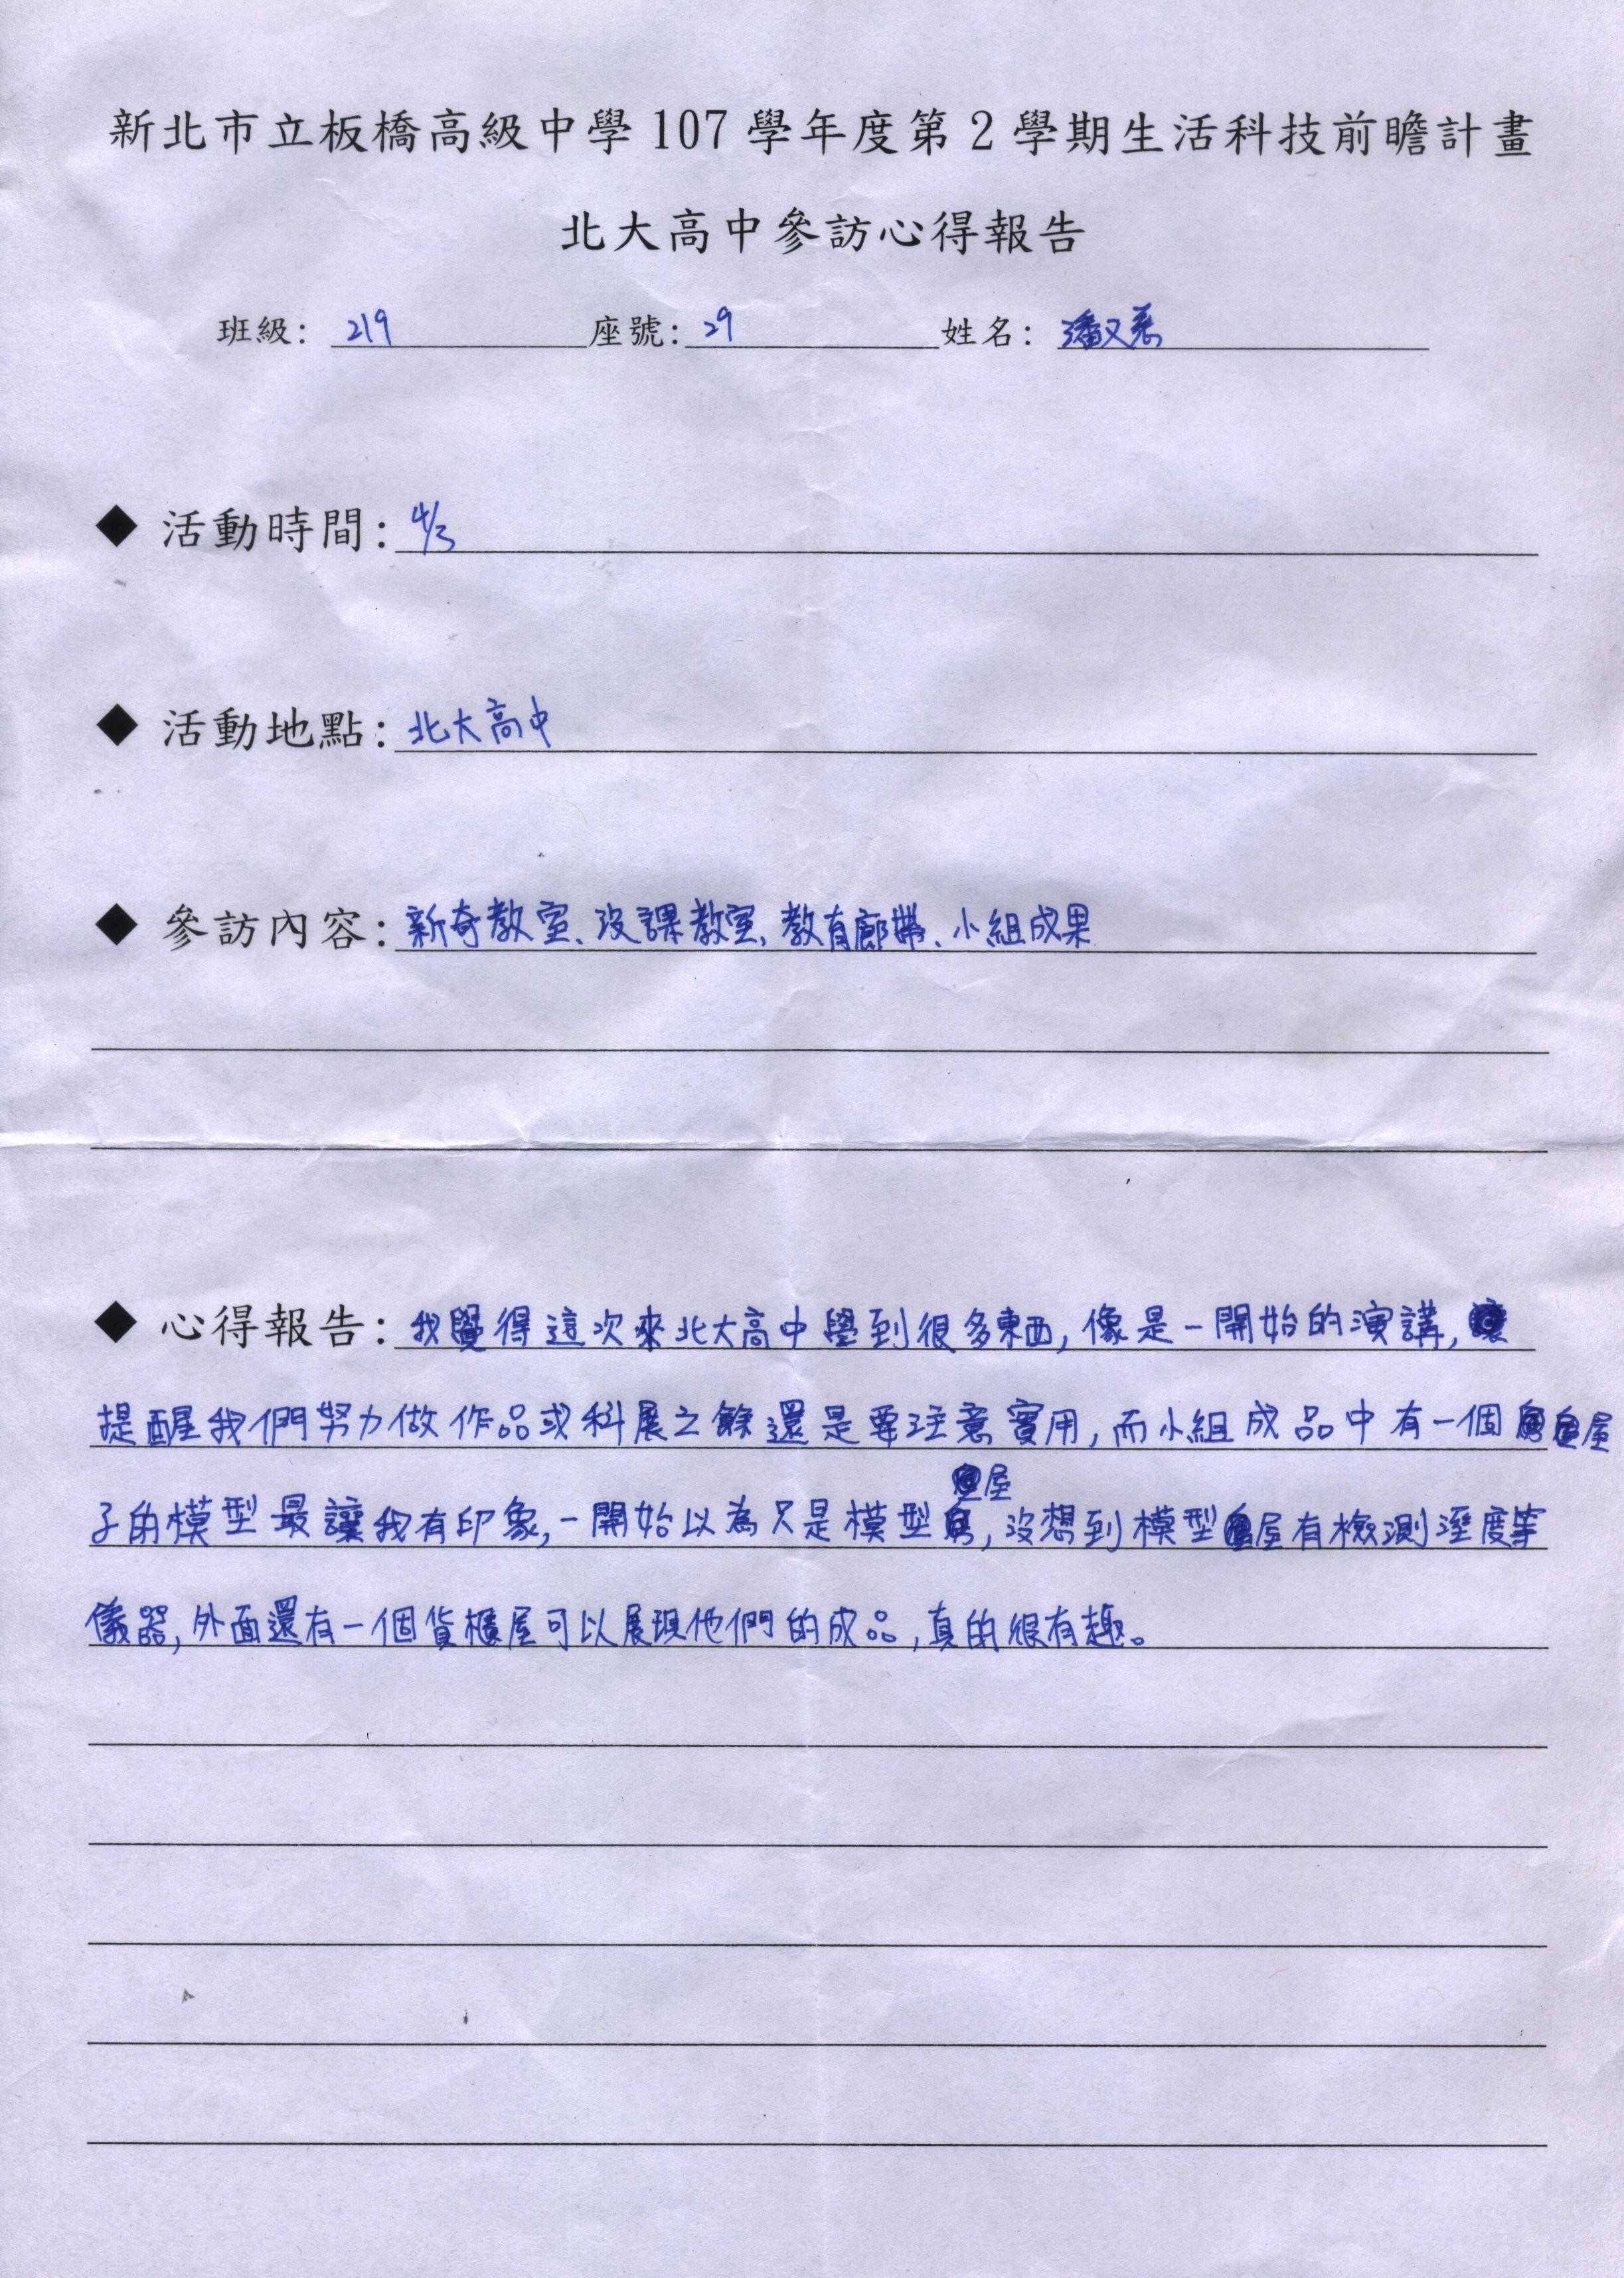 新北市立板橋高級中學107學年度第2學期生活科技前瞻計畫
北大高中參訪心得報告
班級：219 座號：29 姓名：潘又
◆ 活動時間：4/3
◆ 活動地點：北大高中
◆ 參訪內容：新奇教室、沒課教室、教育廊帶、小組成果
◆ 心得報告：我覺得這次來北大高中學到很多東西，像是一開始的演講，
提醒我們努力做作品或科展之餘還是要注意實用，而小組成品中有一個屋
子的模型最讓我有印象，一開始以為只是模型屋，沒想到模型屋有檢測溼度等
儀器，外面還有一個貨櫃屋可以展現他們的成品，真的很有趣。